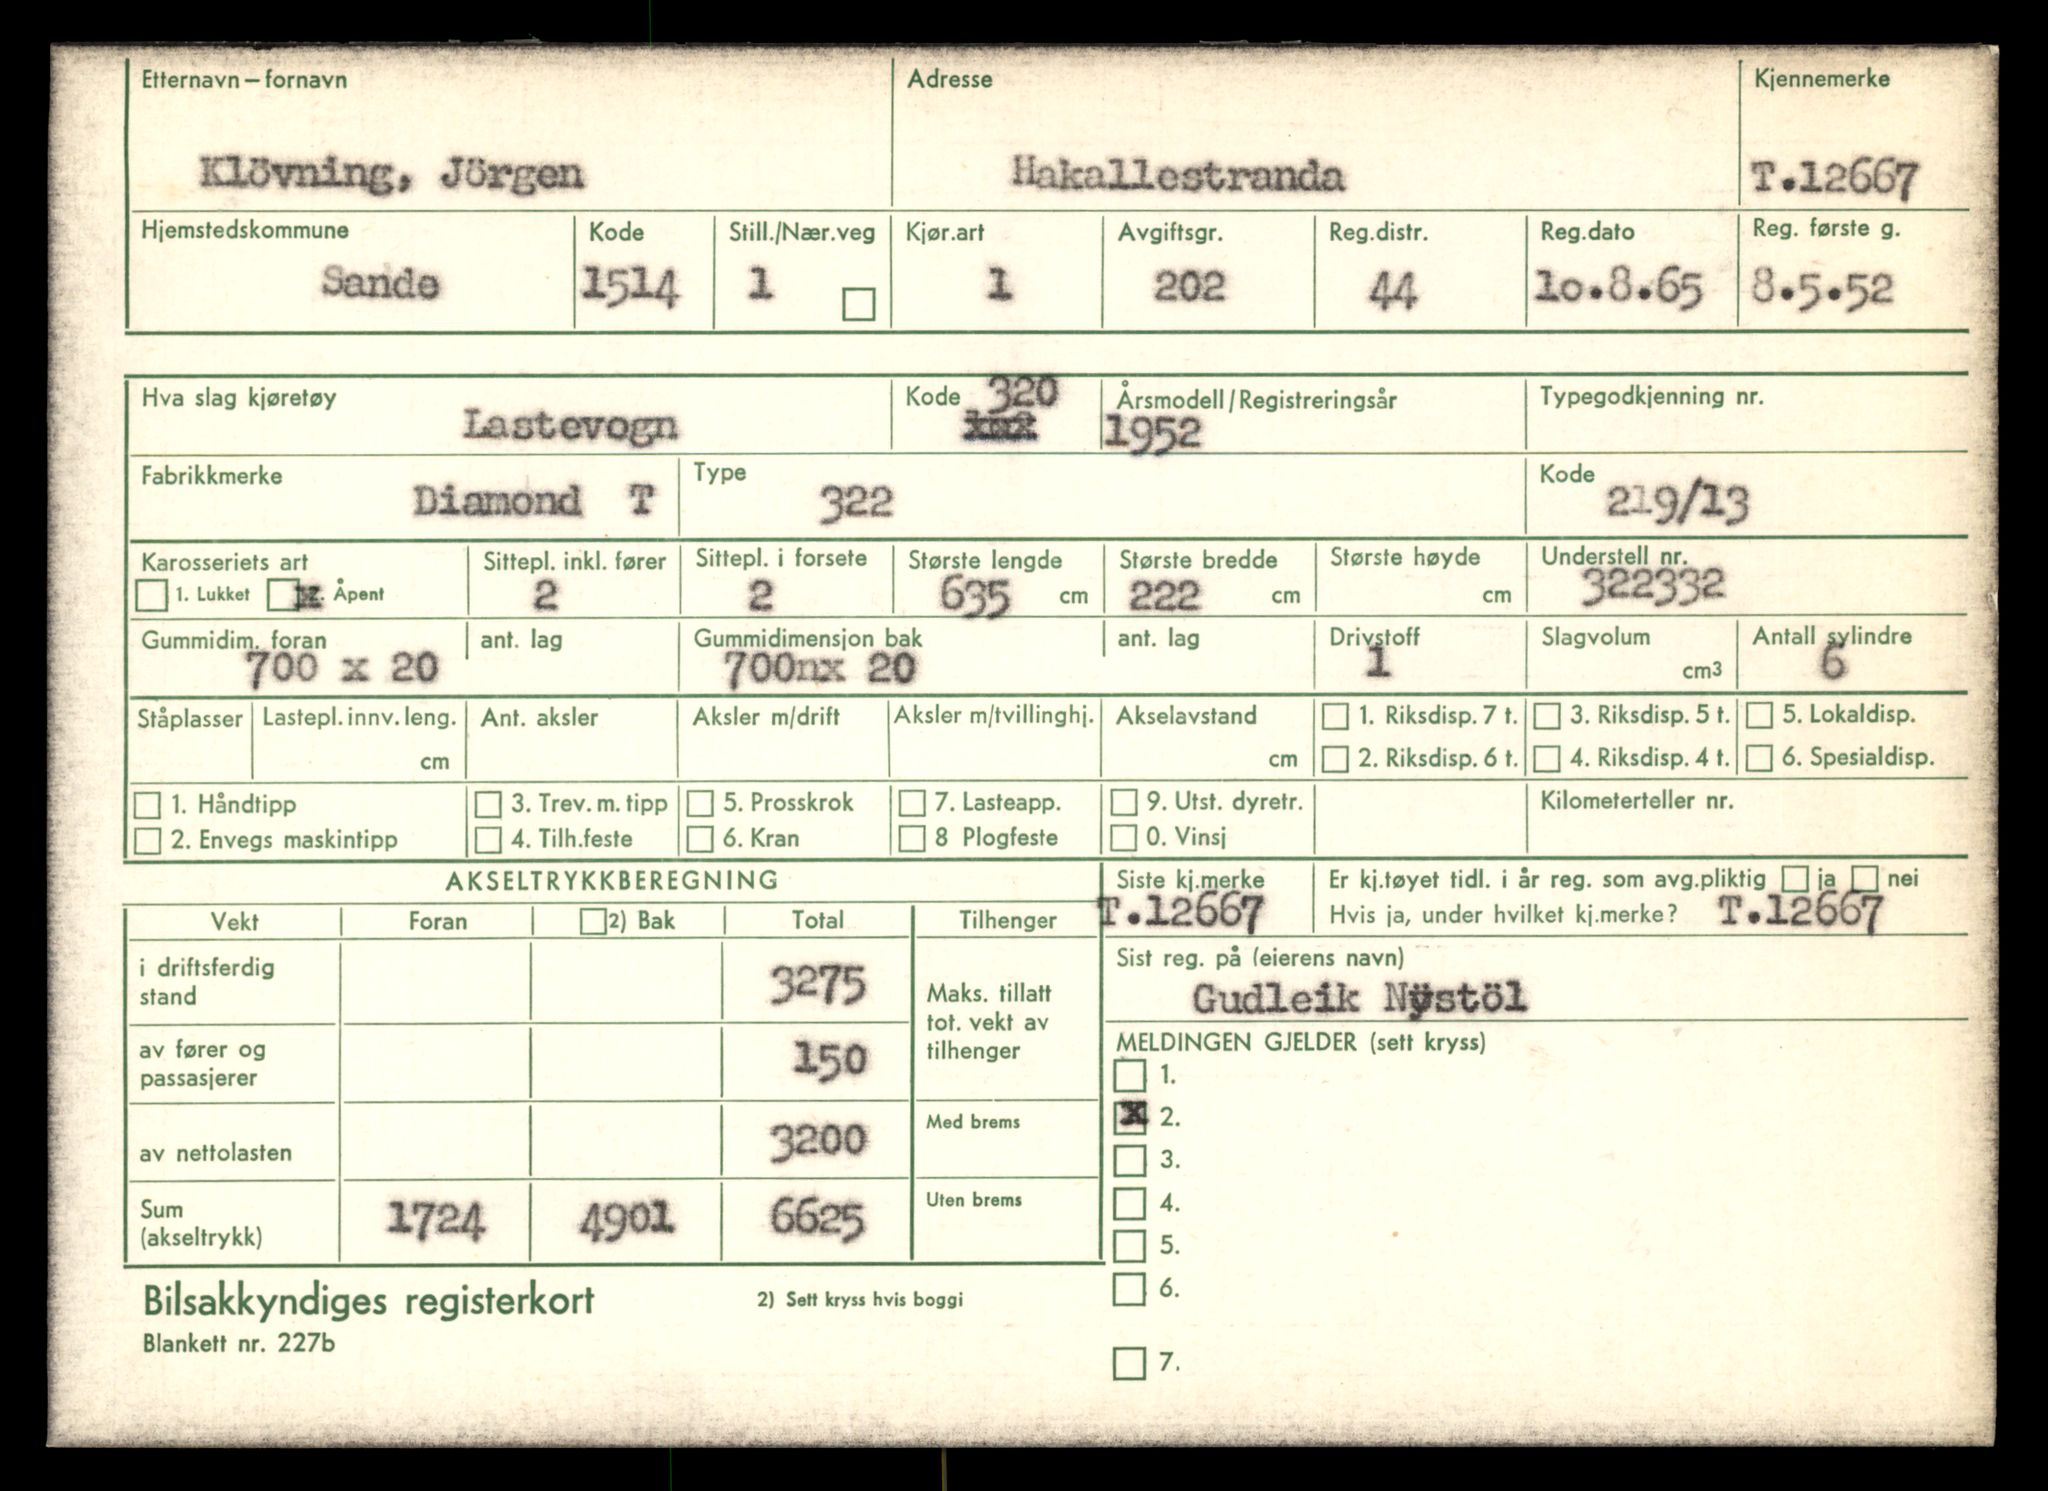 Etternavn – fornavn Adresse Kjennemerke
Klövning, Jörgen Hakallestranda T.12667
Hjemstedskommune Kode Still./Nær.veg Kjør.art Avgiftsgr. Reg.distr. Reg.dato Reg. første g.
Sande 1514 1 1 202 44 1o.8.65 8.5.52
Hva slag kjøretøy Kode 320 Årsmodell/Registreringsår Typegodkjenning nr.
Lastevogn 1952
Fabrikkmerke Type Kode
Diamond T 322 219/13
Karosseriets art Sittepl. inkl. fører Sittepl. i forsete Største lengde Største bredde Største høyde Understell nr.
1. Lukket x 2. Åpent 2 2 635 cm 222 cm cm 322332
Gummidim. foran ant. lag Gummidimensjon bak ant. lag Drivstoff Slagvolum Antall sylindre
700 x 20 700nx 20 1 cm3 6
Ståplasser Lastepl. innv. leng. Ant. aksler Aksler m/drift Aksler m/tvillinghj. Akselavstand 1. Riksdisp. 7 t. 3. Riksdisp. 5 t. 5. Lokaldisp.
cm cm 2. Riksdisp. 6 t. 4. Riksdisp. 4 t. 6. Spesialdisp.
1. Håndtipp 3. Trev. m. tipp 5. Prosskrok 7. Lasteapp. 9. Utst. dyretr. Kilometerteller nr.
2. Envegs maskintipp 4. Tilh.feste 6. Kran 8 Plogfeste 0. Vinsj
AKSELTRYKKBEREGNING Siste kj.merke Er kj.tøyet tidl. i år reg. som avg.pliktig ja nei
T.12667 Hvis ja, under hvilket kj.merke? T.12667
Vekt Foran 2) Bak Total Tilhenger
Sist reg. på (eierens navn)
i driftsferdig
stand 3275
Gudleik Nystöl
Maks. tillatt
tot. vekt av
tilhenger
MELDINGEN GJELDER (sett kryss)
av fører og
passasjerer 150
1.
x 2.
Med brems
av nettolasten 3200
3.
4.
Uten brems
Sum
(akseltrykk) 1724 4901 6625
5.
6.
Bilsakkyndiges registerkort 2) Sett kryss hvis boggi
Blankett nr. 227b
7.